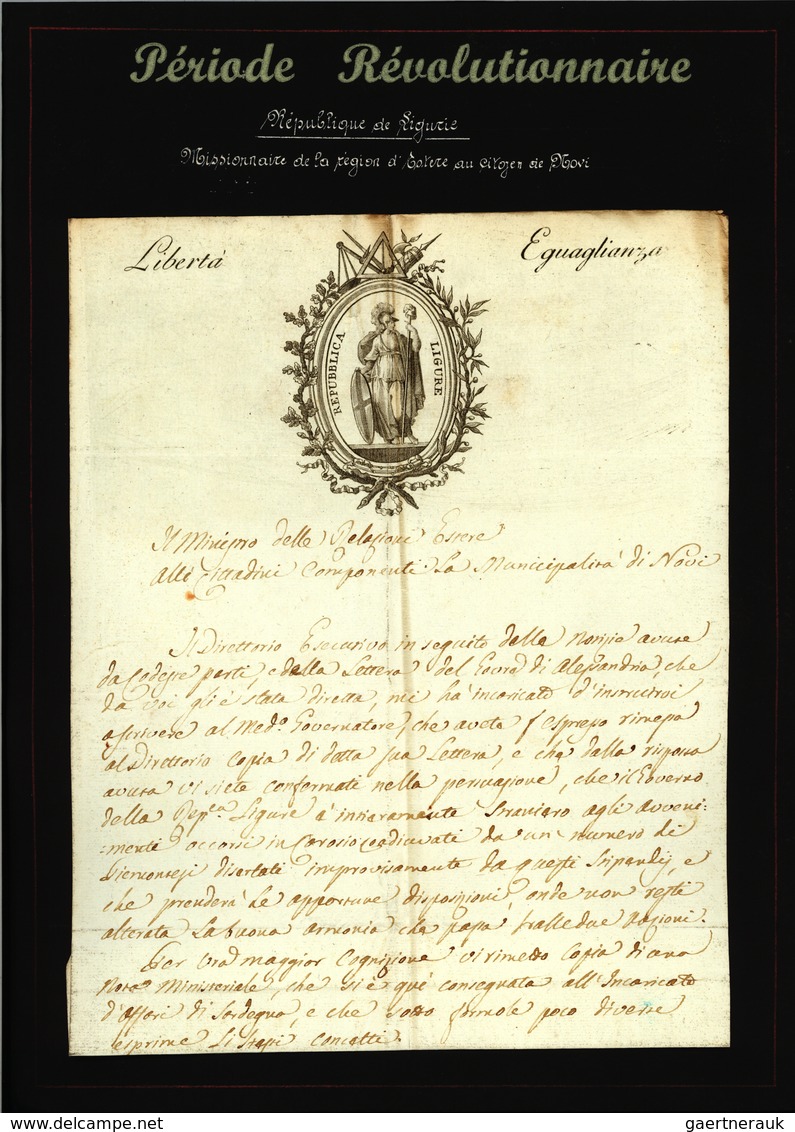 Période Révolutionnaire
République de Ligurie
Missionnaire de la région d'Extere au citoyen de Novi
Libertà
Eguaglianza
REPUBBLICA LIGURE
Il Ministro delle Relazioni Estere
Alli Cittadini Componenti La Municipalità di Novi
Il Direttorio Esecutivo in seguito delle Notizie avute
da Codeste parti, e della Lettera del Govre di Alessandria, che
da voi gli è stata diretta, mi ha incaricato d'instruirvi
a scrivere al Medo Governatore, che avete p espresso rimessa
al Direttorio Copia di detta sua Lettera, e che dalla risposta
avuta vi siete confermati nella persuasione, che il Governo
della Repca Ligure è intieramente straniero agli avveni-
:menti occorsi in Carosio coadiuvati da un numero di
Piemontesi disertati improvisamente da questi Stipendj, e
che prenderà le opportune disposizioni, onde non resti
alterata La buona armonia che passa tralle due Nazioni.
Per vra maggior Cognizione vi rimetto Copia di una
Nota Ministeriale, che si è qui consegnata all'Incaricato
d'Affari di Sardegna, e che sotto formole poco diverse
esprime li stessi Concetti.
gaertnerauk